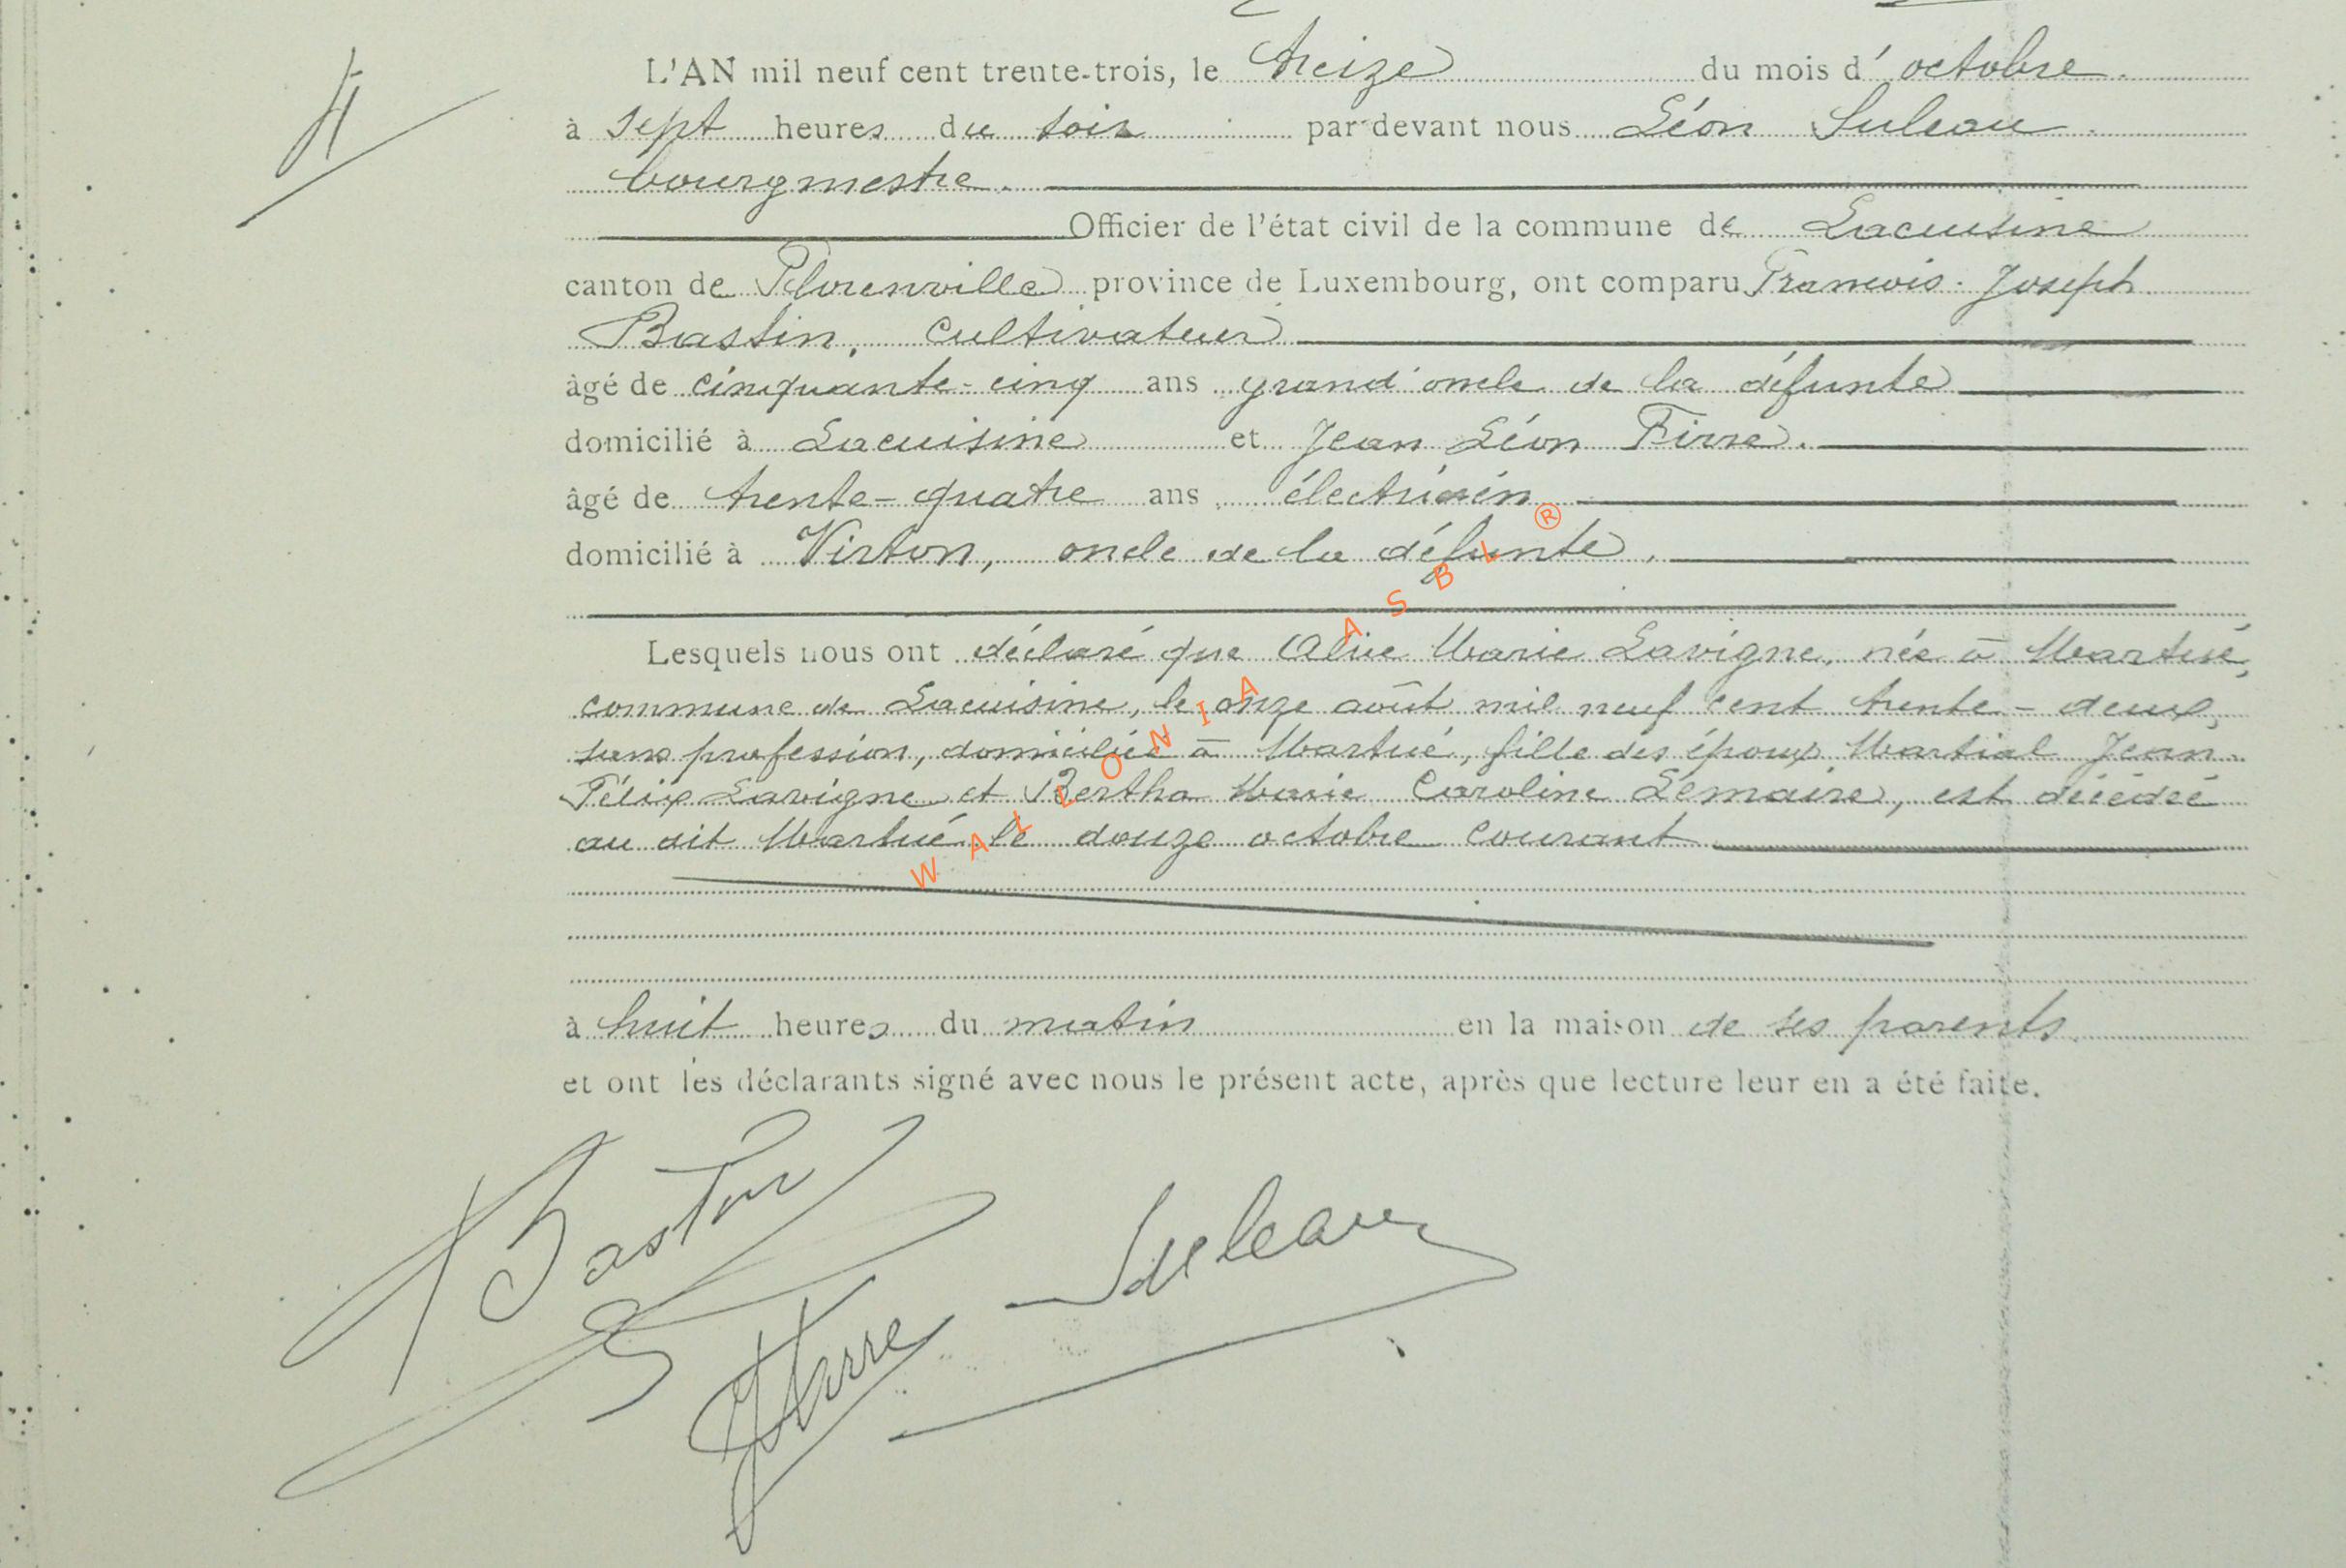 L'AN mil neuf cent trente-trois, le treize du mois d'octobre.
à sept heures du soir par devant nous Léon Suleau
bourgmestre.
Officier de l'état civil de la commune de Lacuisine
canton de Florenville province de Luxembourg, ont comparu François-Joseph
Bastin, cultivateur
âgé de cinquante-cinq ans grand'oncle de la défunte
domicilié à Lacuisine et Jean Léon Firre.
âgé de trente-quatre ans électricien
domicilié à Virton, oncle de la défunte.
Lesquels nous ont déclaré que Alice Marie Lavigne, née à Martué,
commune de Lacuisine, le onze août mil neuf cent trente-deux,
sans profession, domiciliée à Martué, fille des époux Martial Jean
Félix Lavigne et Bertha Marie Caroline Lemaire, est décédée
au dit Martué le douze octobre courant
à huit heures du matin en la maison de ses parents.
et ont les déclarants signé avec nous le présent acte, après que lecture leur en a été faite.
Bastin
Suleau
JFirre
WALLONIA ASBL ®